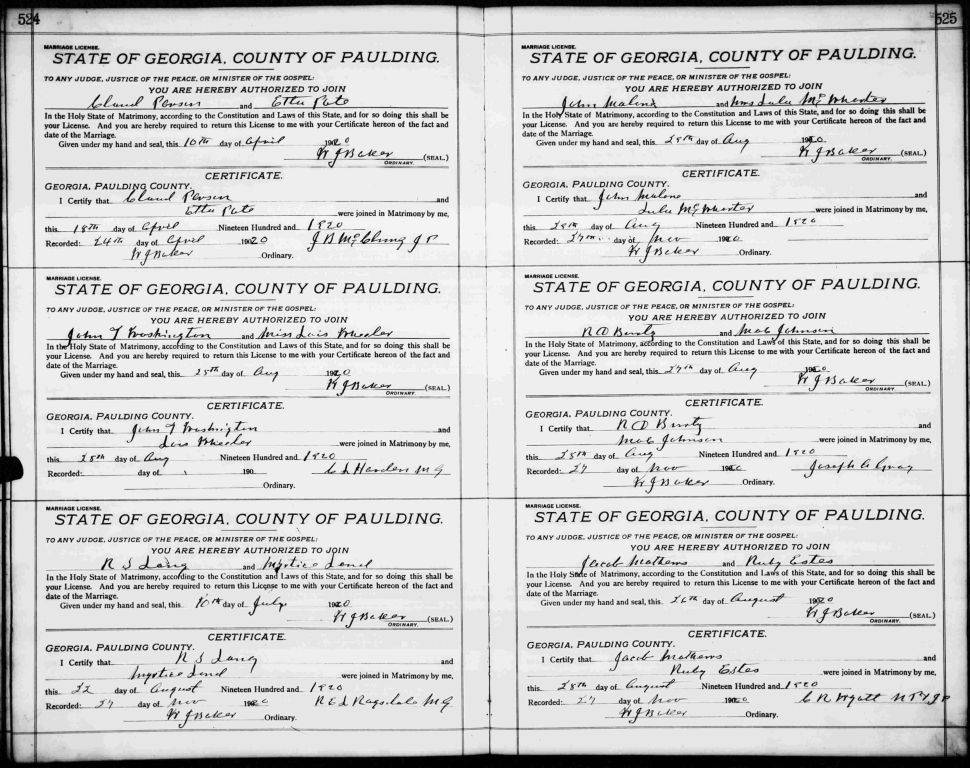 524
MARRIAGE LICENSE.
STATE OF GEORGIA, COUNTY OF PAULDING.
TO ANY JUDGE, JUSTICE OF THE PEACE, OR MINISTER OF THE GOSPEL:
YOU ARE HEREBY AUTHORIZED TO JOIN
Claud Person and Etta Pate
In the Holy State of Matrimony, according to the Constitution and Laws of this State, and for so doing this shall be
your License. And you are hereby required to return this License to me with your Certificate hereon of the fact and
date of the Marriage.
Given under my hand and seal, this 10th day of April 1920
W J Baker (SEAL.)
ORDINARY.
CERTIFICATE.
GEORGIA, PAULDING COUNTY.
I Certify that Claud Person and
Etta Pate were joined in Matrimony by me,
this 18th day of April Nineteen Hundred and 1920
Recorded: 24th day of April 1920 J B McClung J P
W J Baker Ordinary.
MARRIAGE LICENSE.
STATE OF GEORGIA, COUNTY OF PAULDING.
TO ANY JUDGE, JUSTICE OF THE PEACE, OR MINISTER OF THE GOSPEL:
YOU ARE HEREBY AUTHORIZED TO JOIN
John T Washington and Miss Lois Wheeler
In the Holy State of Matrimony, according to the Constitution and Laws of this State, and for so doing this shall be
your License. And you are hereby required to return this License to me with your Certificate hereon of the fact and
date of the Marriage.
Given under my hand and seal, this 25th day of Aug 1920
W J Baker (SEAL)
ORDINARY.
CERTIFICATE.
GEORGIA, PAULDING COUNTY.
I Certify that John T Washington and
Lois Wheeler were joined in Matrimony by me,
this 28th day of Aug Nineteen Hundred and 1920
Recorded: day of 190 Harden M G
Ordinary.
MARRIAGE LICENSE.
STATE OF GEORGIA, COUNTY OF PAULDING.
TO ANY JUDGE, JUSTICE OF THE PEACE, OR MINISTER OF THE GOSPEL:
YOU ARE HEREBY AUTHORIZED TO JOIN
R S Lang and Myrtice
In the Holy State of Matrimony, according to the Constitution and Laws of this State, and for so doing this shall be
your License. And you are hereby required to return this License to me with your Certificate hereon of the fact and
date of the Marriage.
Given under my hand and seal, this 10th day of July 1920
W J Baker (SEAL)
ORDINARY.
CERTIFICATE.
GEORGIA, PAULDING COUNTY.
I Certify that R S Lang and
Myrtice were joined in Matrimony by me,
this 22 day of August Nineteen Hundred and 1920
Recorded: 27 day of Nov 1920 Ragsdale M G
W J Baker Ordinary.
525
MARRIAGE LICENSE.
STATE OF GEORGIA, COUNTY OF PAULDING.
TO ANY JUDGE, JUSTICE OF THE PEACE, OR MINISTER OF THE GOSPEL:
YOU ARE HEREBY AUTHORIZED TO JOIN
John Malone and Mrs Lula McWhorter
In the Holy State of Matrimony, according to the Constitution and Laws of this State, and for so doing this shall be
your License. And you are hereby required to return this License to me with your Certificate hereon of the fact and
date of the Marriage.
Given under my hand and seal, this 28th day of Aug 1920
W J Baker (SEAL.)
ORDINARY.
CERTIFICATE.
GEORGIA, PAULDING COUNTY.
I Certify that John Malone and
Lula McWhorter were joined in Matrimony by me,
this 28th day of Aug Nineteen Hundred and 1920
Recorded: 27th day of Nov 1920
W J Baker Ordinary.
MARRIAGE LICENSE.
STATE OF GEORGIA, COUNTY OF PAULDING.
TO ANY JUDGE, JUSTICE OF THE PEACE, OR MINISTER OF THE GOSPEL:
YOU ARE HEREBY AUTHORIZED TO JOIN
R D and Johnson
In the Holy State of Matrimony, according to the Constitution and Laws of this State, and for so doing this shall be
your License. And you are hereby required to return this License to me with your Certificate hereon of the fact and
date of the Marriage.
Given under my hand and seal, this 27th day of Aug 1920
W J Baker (SEAL)
ORDINARY.
CERTIFICATE.
GEORGIA, PAULDING COUNTY.
I Certify that R D and
Johnson were joined in Matrimony by me,
this 28th day of Aug Nineteen Hundred and 1920
Recorded: 27 day of Nov 1920 Joseph A Gray
W J Baker Ordinary.
MARRIAGE LICENSE.
STATE OF GEORGIA, COUNTY OF PAULDING.
TO ANY JUDGE, JUSTICE OF THE PEACE, OR MINISTER OF THE GOSPEL:
YOU ARE HEREBY AUTHORIZED TO JOIN
Jacob Mathews and Ruby Estes
In the Holy State of Matrimony, according to the Constitution and Laws of this State, and for so doing this shall be
your License. And you are hereby required to return this License to me with your Certificate hereon of the fact and
date of the Marriage.
Given under my hand and seal, this 26th day of August 1920
W J Baker (SEAL)
ORDINARY.
CERTIFICATE.
GEORGIA, PAULDING COUNTY.
I Certify that Jacob Mathews and
Ruby Estes were joined in Matrimony by me,
this 28th day of August Nineteen Hundred and 1920
Recorded: 27 day of Nov 1920 C R Wyatt N P & J P
W J Baker Ordinary.